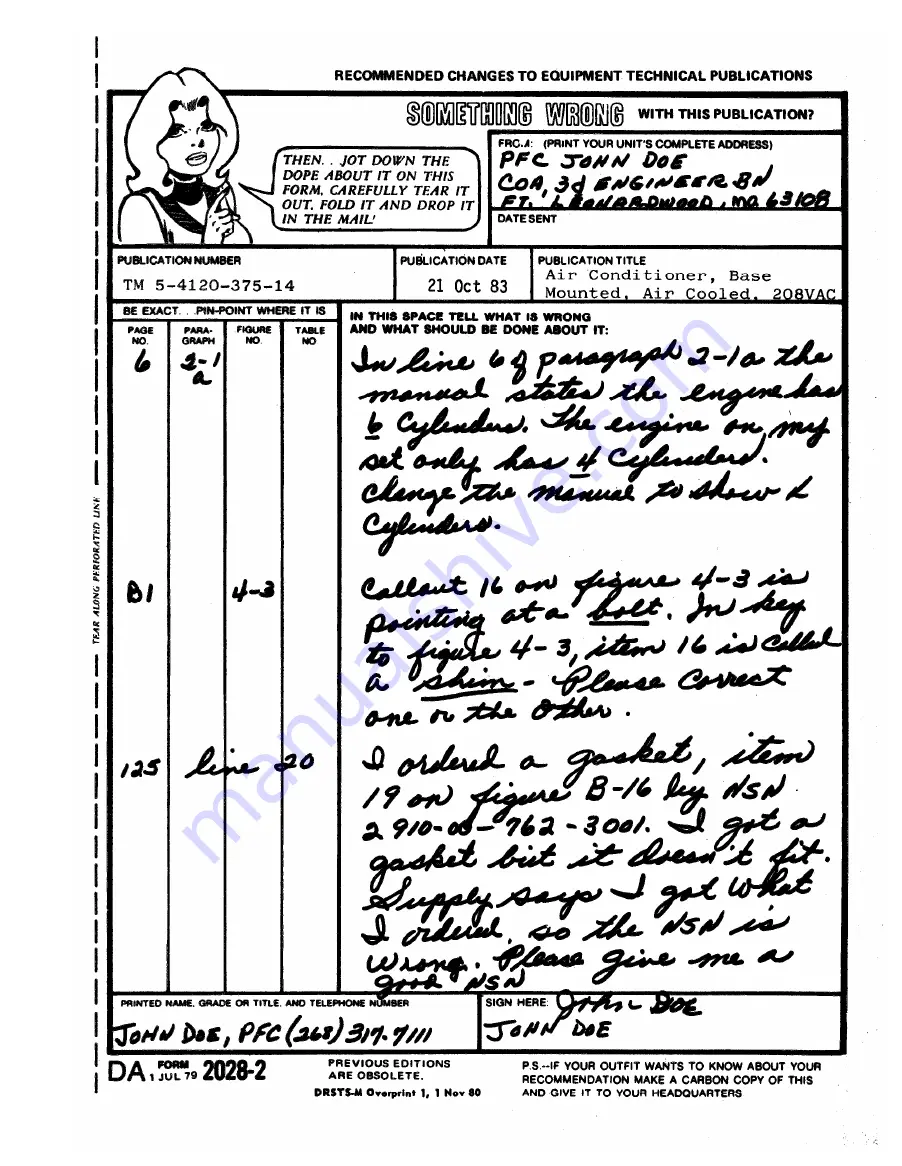 RECOMMENDED CHANGES TO EQUIPMENT TECHNICAL PUBLICATIONS
SOMETHING WRONG WITH THIS PUBLICATION?
THEN. . JOT DOWN THE
DOPE ABOUT IT ON THIS
FORM, CAREFULLY TEAR IT
OUT, FOLD IT AND DROP IT
IN THE MAIL!
FROM: (PRINT YOUR UNIT'S COMPLETE ADDRESS)
PFC JOHN DOE
COA, 3d ENGINEER BN
FT. LEONARDWOOD, MO 63108
DATE SENT
PUBLICATION NUMBER
TM 5-4120-375-14
PUBLICATION DATE
21 Oct 83
PUBLICATION TITLE
Air Conditioner, Base
Mounted, Air Cooled, 208VAC
BE EXACT. . .PIN-POINT WHERE IT IS
PAGE NO.
PARA-GRAPH
FIGURE NO.
TABLE NO
IN THIS SPACE TELL WHAT IS WRONG
AND WHAT SHOULD BE DONE ABOUT IT:
6 2-1 a
In line 6 of paragraph 2-1a the
manual states the engine has
6 Cylinders. The engine on my
set only has 4 Cylinders.
Change the manual to show 4
Cylinders.
B1 4-3
Callout 16 on figure 4-3 is
pointing at a bolt. In key
to figure 4-3, item 16 is called
a shim - Please Correct
one or the other.
125 line 20
I ordered a gasket, item
19 on figure B-16 by NSN
2910-05-762-3001. I got a
gasket but it doesn't fit.
Supply says I got what
I ordered, so the NSN is
wrong. Please give me a
good NSN
PRINTED NAME, GRADE OR TITLE, AND TELEPHONE NUMBER
JOHN DOE, PFC (268) 317-7111
SIGN HERE: John Doe
JOHN DOE
DA FORM 1 JUL 79 2028-2
PREVIOUS EDITIONS
ARE OBSOLETE.
DRSTS-M Overprint 1, 1 Nov 80
P.S.--IF YOUR OUTFIT WANTS TO KNOW ABOUT YOUR
RECOMMENDATION MAKE A CARBON COPY OF THIS
AND GIVE IT TO YOUR HEADQUARTERS
TEAR ALONG PERFORATED LINE
manualshive.com